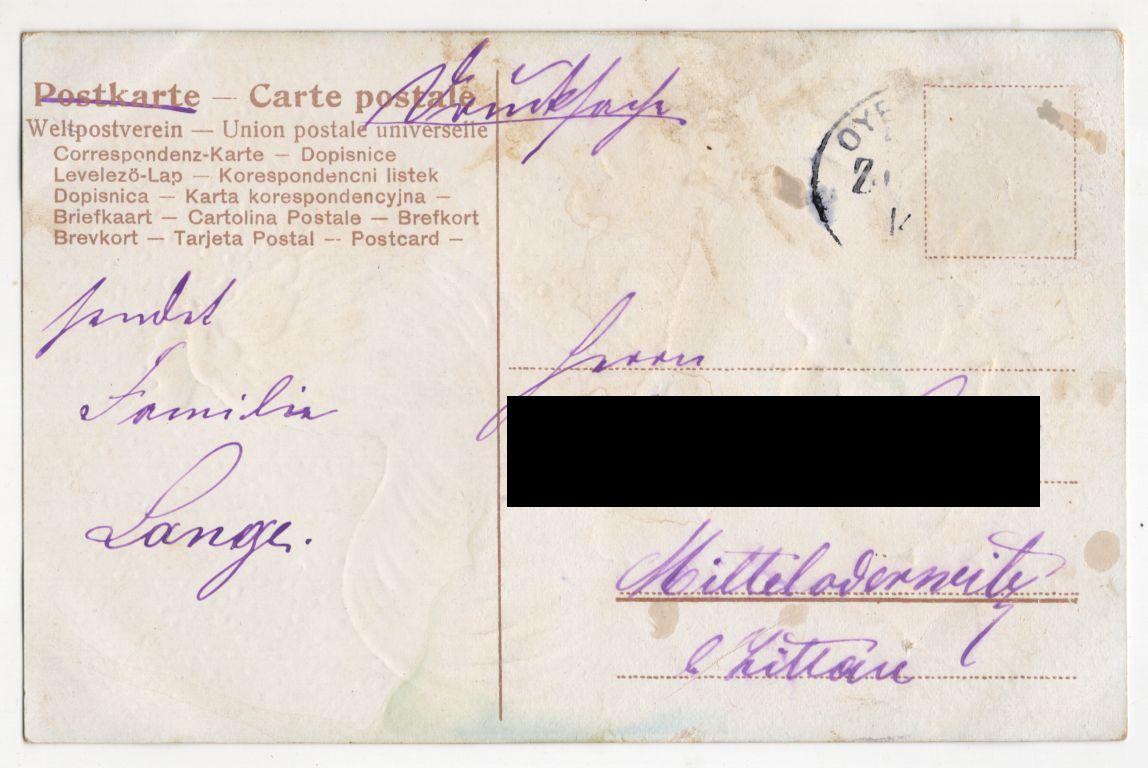 Postkarte — Carte postale
Drucksache
Weltpostverein — Union postale universelle
Correspondenz-Karte — Dopisnice
Levelező-Lap — Korespondencni listek
Dopisnica — Karta korespondencyjna —
Briefkaart — Cartolina Postale — Brefkort
Brevkort — Tarjeta Postal — Postcard —
sendet
Familie
Lange.
Herrn
Mitteloderwitz
b/Zittau